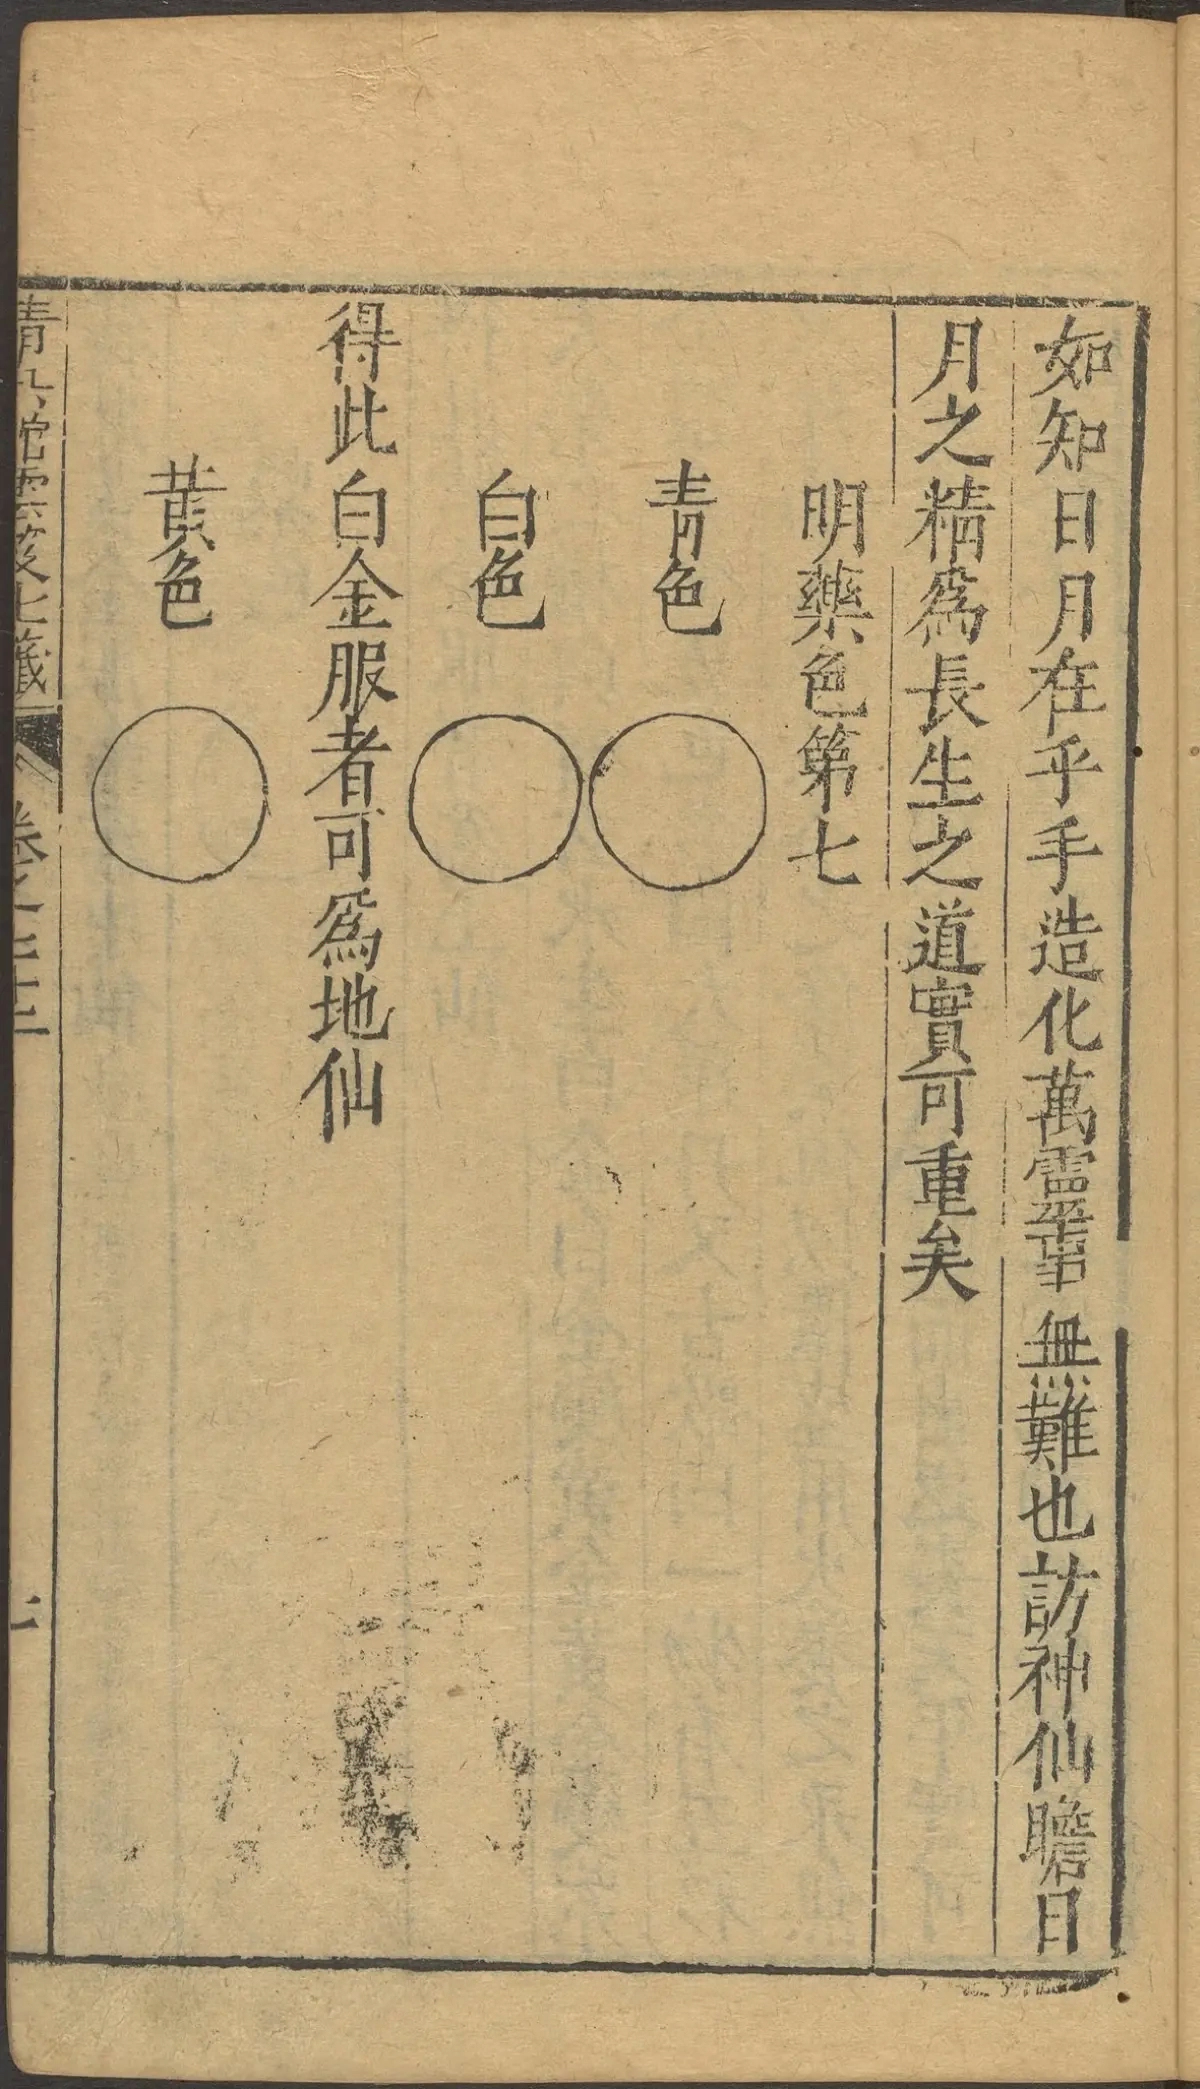 如知日月在乎手造化萬靈事無難也訪神仙瞻日
月之精爲長生之道實可重矣
明藥色第七
青色
白色
得此白金服者可爲地仙
黃色
雲笈七籤